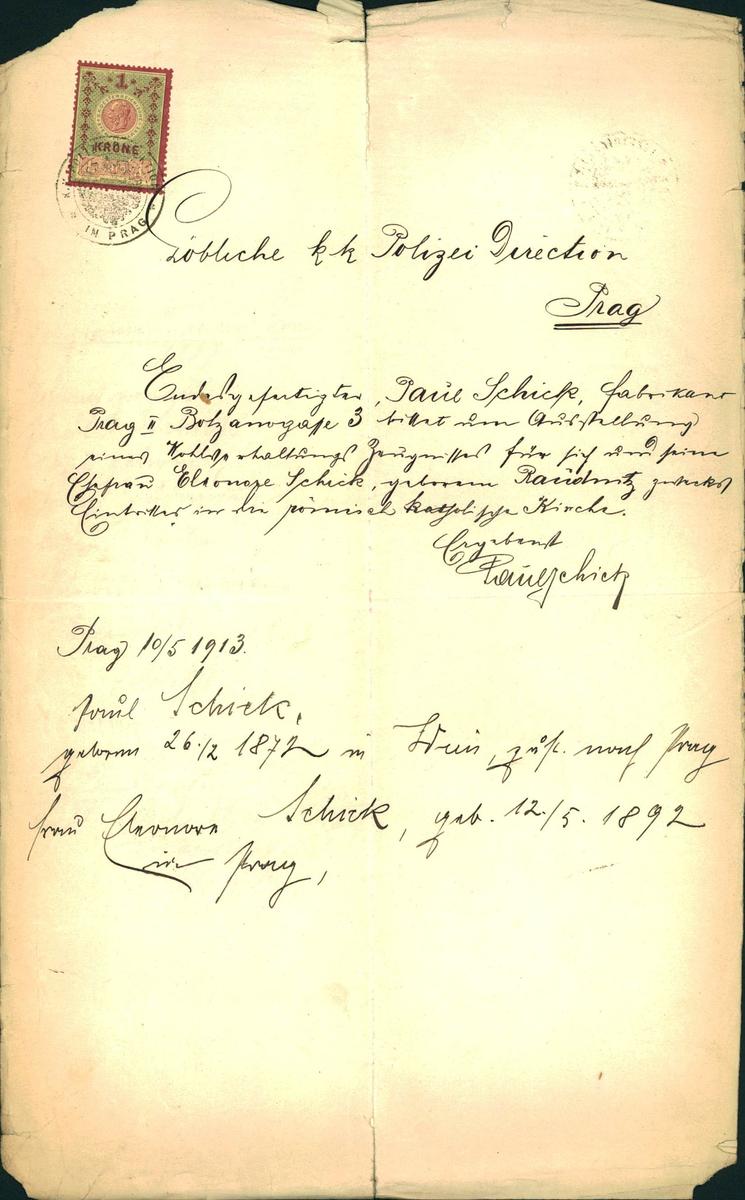 1
KRONE
IM PRAG
Löbliche k k Polizei Direction
Prag
Endesgefertigter, Paul Schick, Fabrikant
Prag II Bolzanogasse 3 bittet um Ausstellung
eines Wohlverhaltungs Zeugnisses für sich und seine
Ehefrau Eleonore Schick, geborene Raudnitz zwecks
Eintrittes in die römisch katholische Kirche.
Ergebenst
Paul Schick
Prag 10/5 1913.
Paul Schick,
geboren 26./2 1872 in Wien, zust. nach Prag
Frau Eleonore Schick, geb. 12./5. 1892
in Prag,